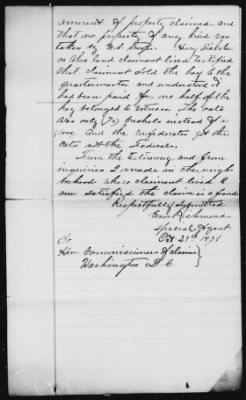 amount of property claimed and
that no property of any kind was
taken by U.S. troops. Henry
on who land claimant lived testified
that claimant sold the hay to the
quartermaster and understood it
had been paid for one half of the
hay belonged to witness. The oats
was only (70) bushels instead of
and the confederates got the
oats not the Federals.
From the testimony and from
inquiries I made in the neigh-
borhood where claimant lived I
am satisfied the claim is a fraud
Respectfully submitted
Richmond
Special Agent
Oct 29th 1878
To
Hon Commissioners of Claims
Washington D.C.